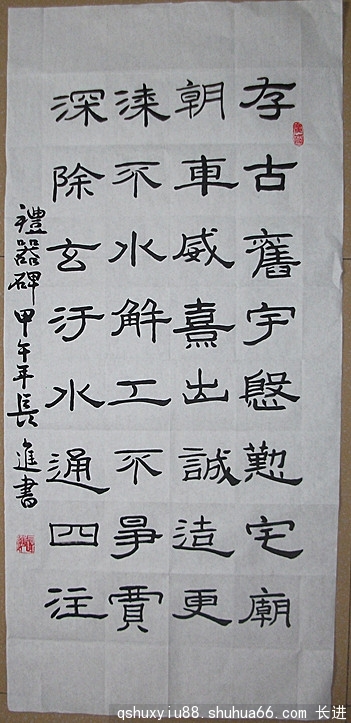 存古舊宇慇懃宅廟
朝車威熹出誠造更
漆不水解工不爭賈
深除玄汙水通四注
禮器碑甲午年長進書
qshuxyiu88.shuhua66.com 长进